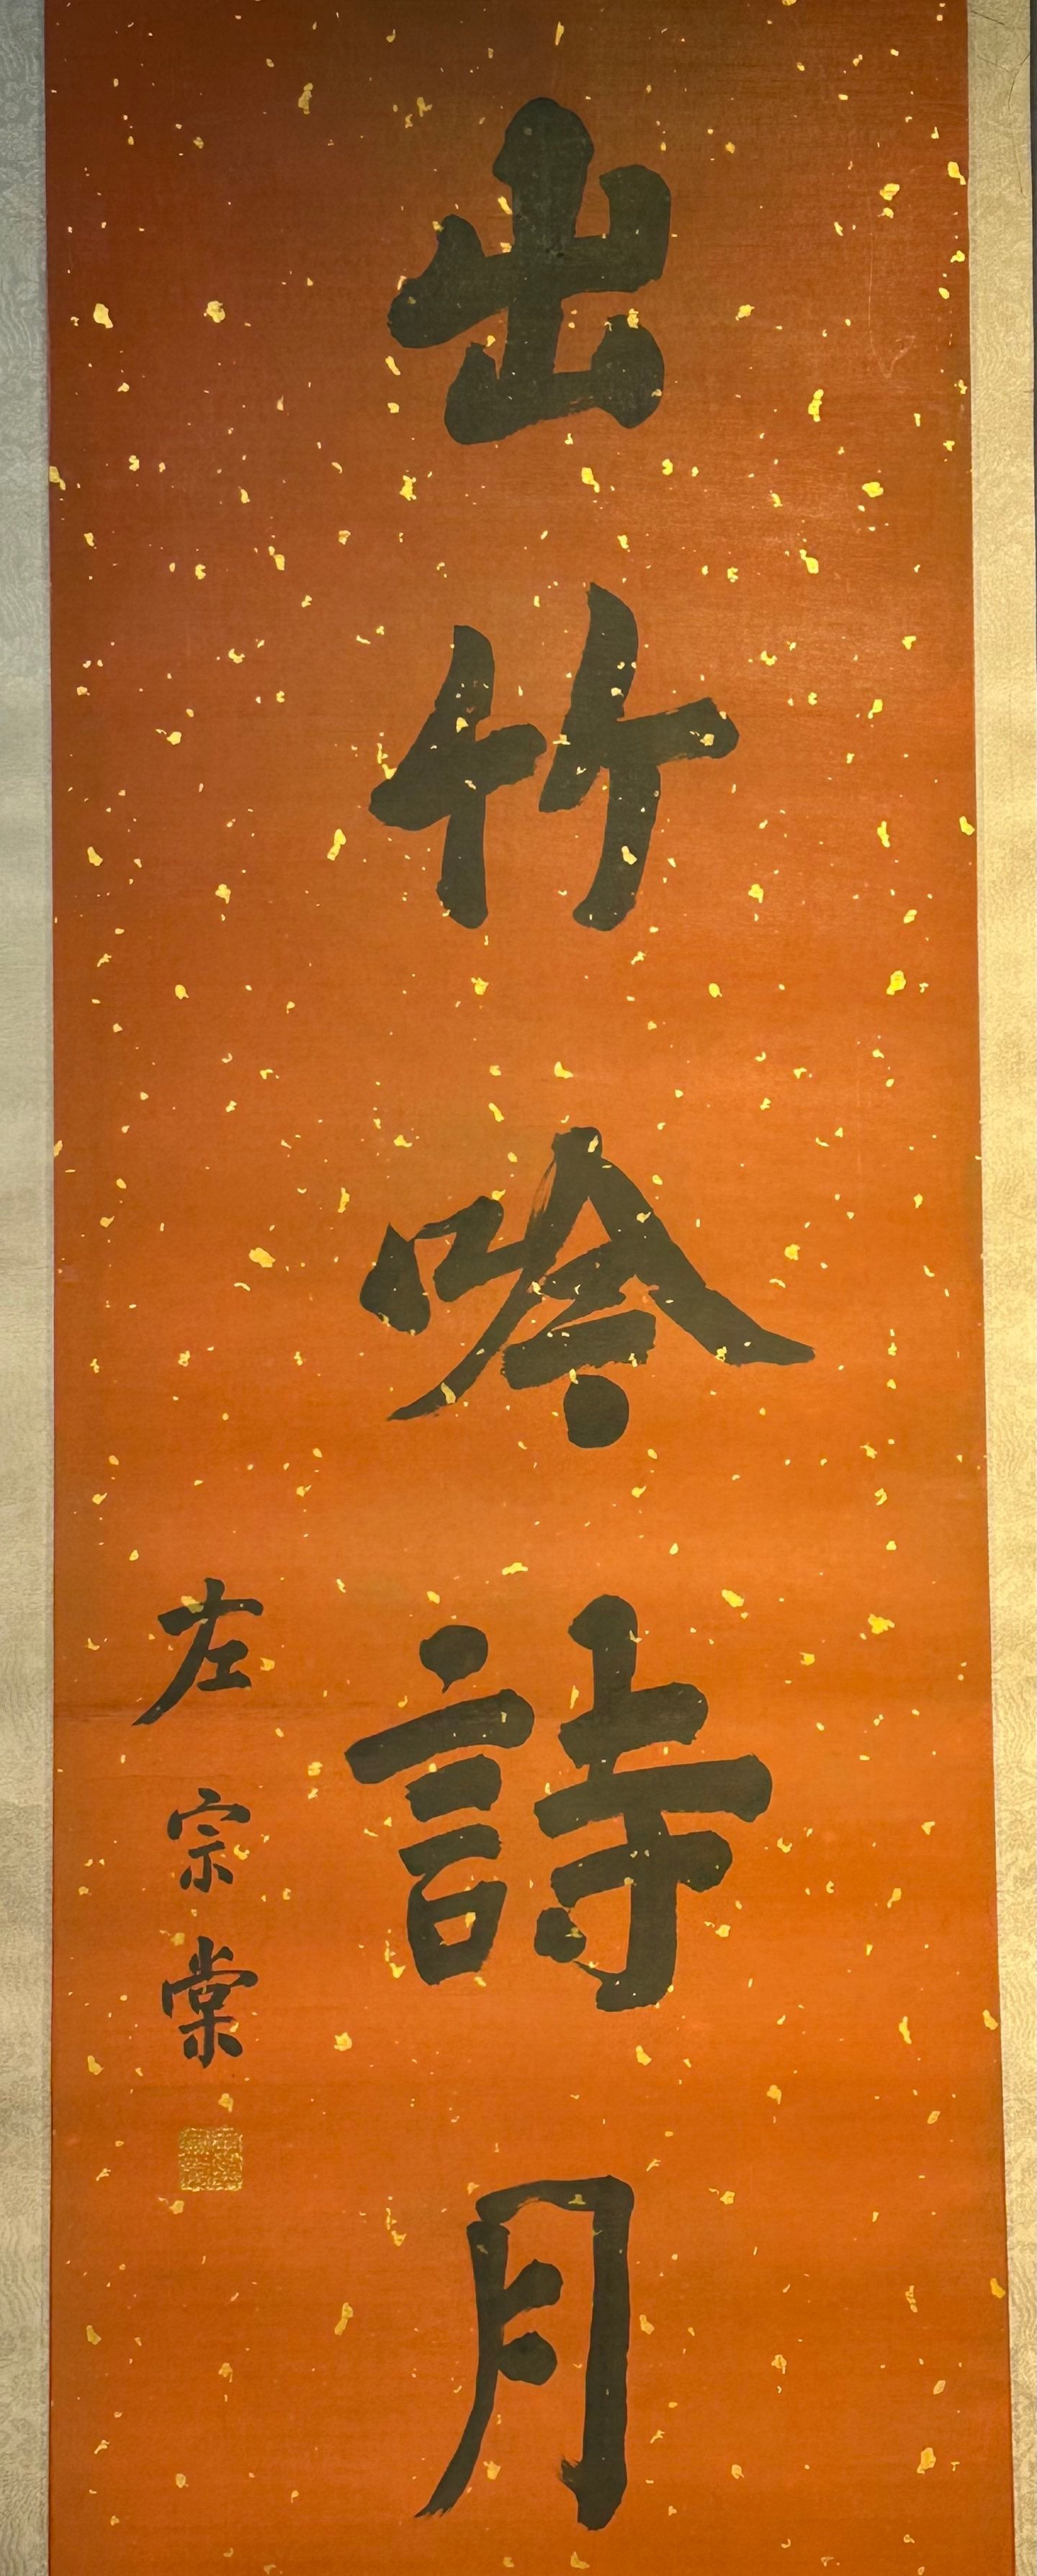 出竹吟詩月
左宗棠